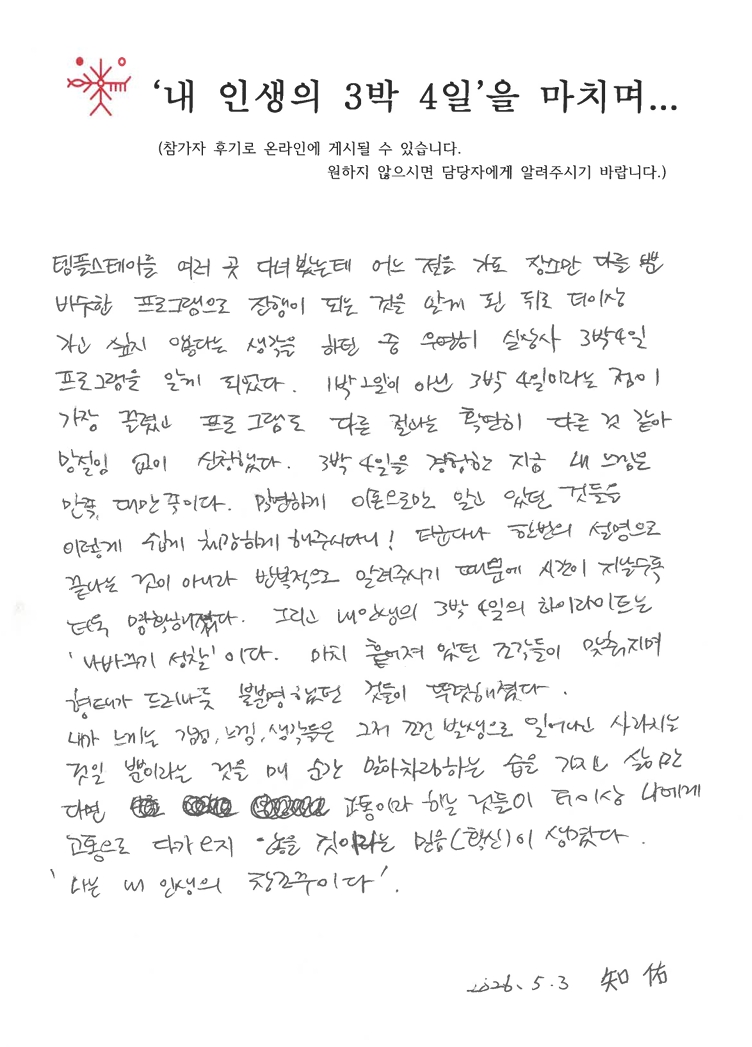 '내 인생의 3박 4일'을 마치며...
(참가자 후기로 온라인에 게시될 수 있습니다.
원하지 않으시면 담당자에게 알려주시기 바랍니다.)
템플스테이를 여러 곳 다녀봤는데 어느 절을 가도 장소만 다를 뿐
비슷한 프로그램으로 진행이 되는 것을 알게 된 뒤로 더이상
가고 싶지 않다는 생각을 하던 중 우연히 실상사 3박4일
프로그램을 알게 되었다. 1박 2일이 아닌 3박 4일이라는 점이
가장 끌렸고 프로그램도 다른 절과는 확연히 다른 것 같아
망설임 없이 신청했다. 3박 4일을 경험한 지금 내 느낌은
만족, 대만족이다. 막연하게 이론으로만 알고 있던 것들을
이렇게 쉽게 체감하게 해주시다니! 더군다나 한번의 설명으로
끝나는 것이 아니라 반복적으로 알려주시기 때문에 시간이 지날수록
더욱 명확해졌다. 그리고 내인생의 3박 4일의 하이라이트는
'나바꾸기 성찰'이다. 마치 흩어져 있던 조각들이 맞춰지며
형태가 드러나듯 불분명했던 것들이 뚜렷해졌다.
내가 느끼는 감정, 느낌, 생각들은 그저 조건 발생으로 일어나고 사라지는
것일 뿐이라는 것을 매 순간 알아차림하는 습을 가지고 삶만
다면 고통이라 하는 것들이 더이상 나에게
고통으로 다가오지 않을 것이라는 믿음(확신)이 생겼다.
'나는 내 인생의 창조주이다'.
2026. 5. 3 知佑